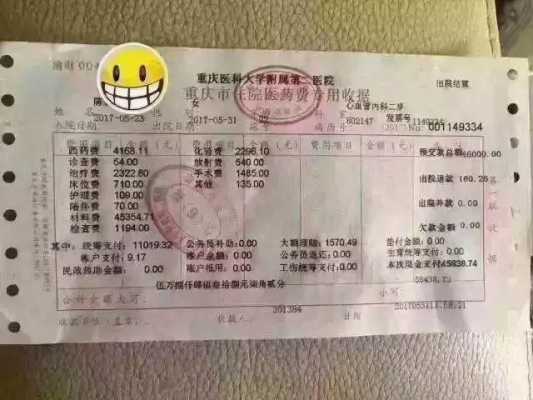 渝财 004
重庆医科大学附属第二医院 出院结算
重庆市住院医药费专用收据
女 心血管内科二病
入院日期 2017-05-23 出院日期 2017-05-31 病历号 602147 发票号 1149334
(2017)No: 001149334
费用项目 金额(元) 费用项目 金额(元) 费用项目 金额(元)
西药费 4168.11 化验费 2298.10 预交款总额 46000.00
诊查费 54.00 放射费 540.00
治疗费 2322.80 手术费 1485.00 出院退款 160.26
床位费 710.00 其他 135.00
护理费 109.00 出院补款 0.00
陪伴费 70.00
材料费 45354.71 欠款金额 0.00
检查费 1194.00
其中: 统筹支付: 11019.32 公务员补助: 0.00 大额理赔: 1570.49 垫付金额: 0.00
账户支付: 9.17 账户余额: 0.00 公务员返还: 0.00 生育统筹支付: 0.00
民政救助金额: 0.00 账户抵用: 0.00 工伤统筹支付: 0.00 本次现金支付: 45839.74
合计金额大写: 小写
201384
收款单位(盖章): 收款人: 日期